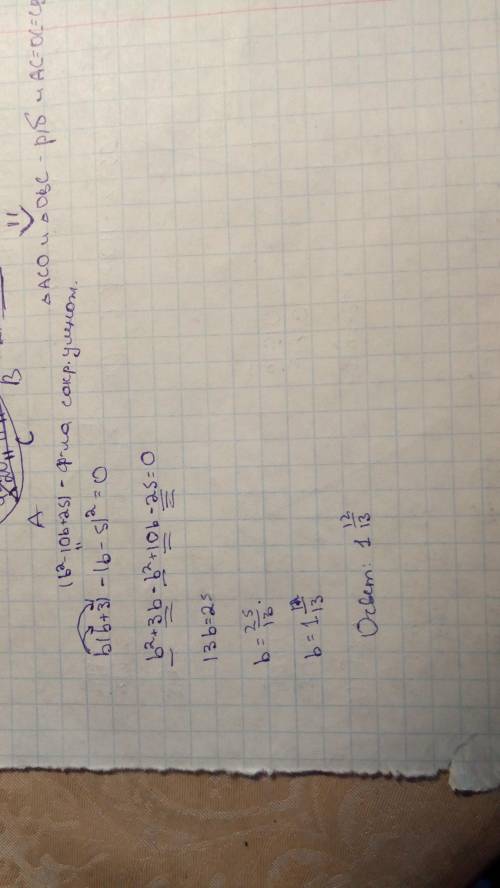 A
C
B
△ACO и △OBC - р/б и AC=OC=
(b²-10b+25) - ф-ла сокр. умнож.
b(b+3) - (b-5)² = 0
b²+3b-b²+10b-25=0
13b=25
b = 25/13.
b = 1 12/13
Ответ: 1 12/13